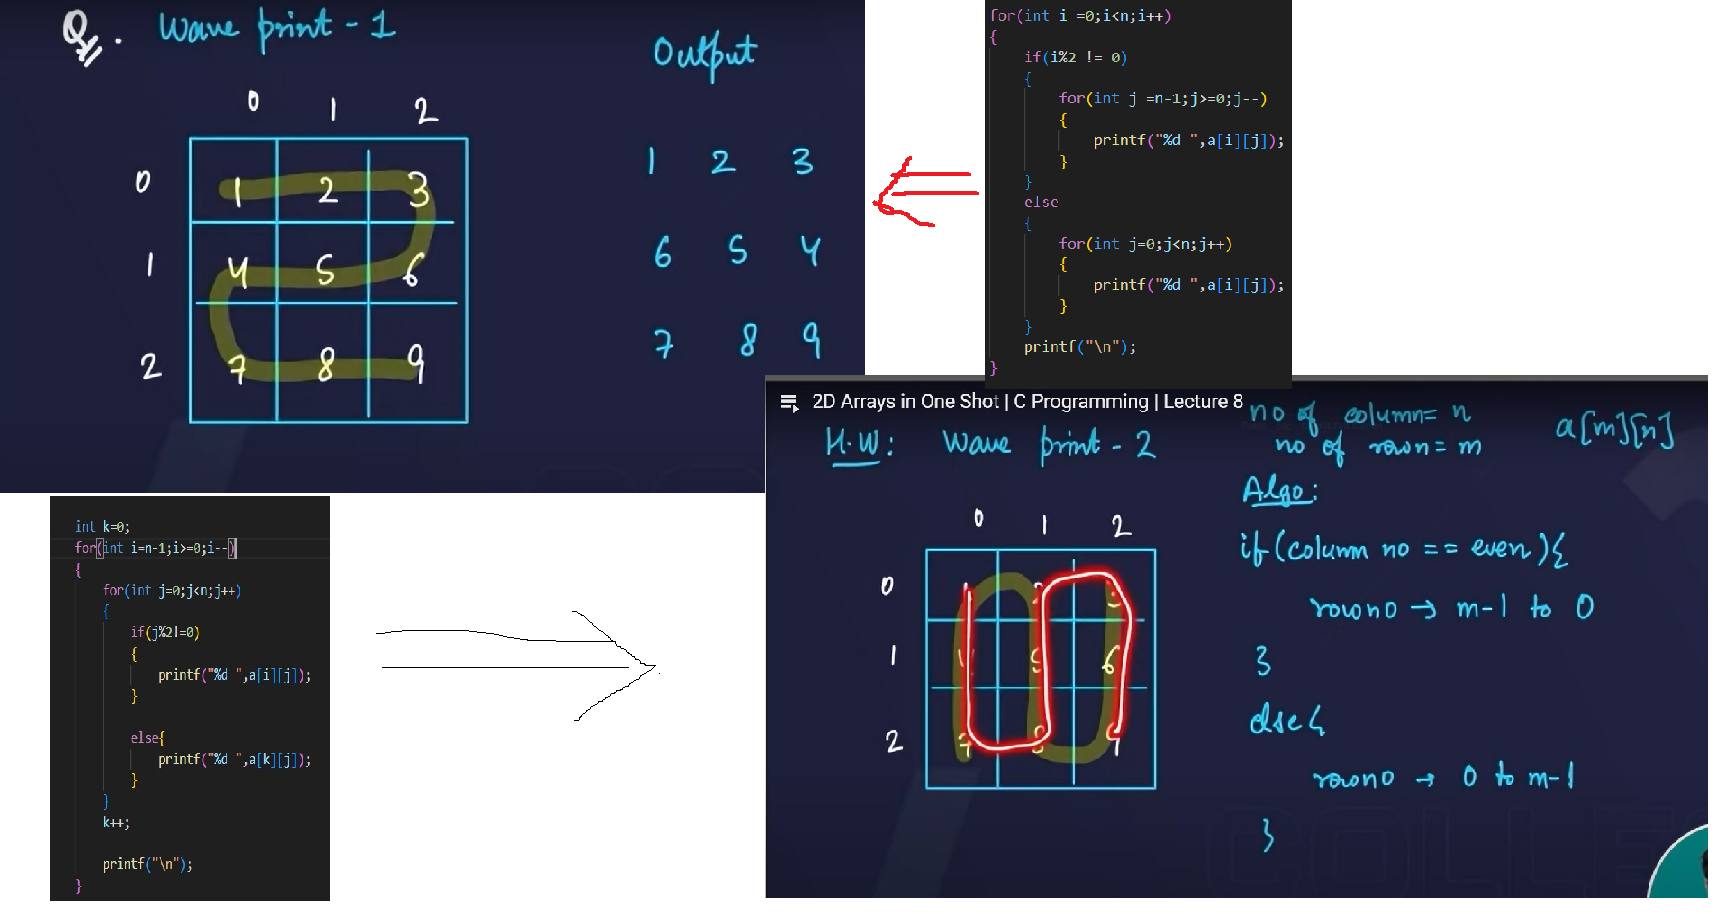 Q. Wave print - 1
Output
0 1 2
0 1 2 3
1 4 5 6
2 7 8 9
1 2 3
6 5 4
7 8 9
for(int i =0;i<n;i++)
{
if(i%2 != 0)
{
for(int j =n-1;j>=0;j--)
{
printf("%d ",a[i][j]);
}
}
else
{
for(int j=0;j<n;j++)
{
printf("%d ",a[i][j]);
}
}
printf("\n");
}
int k=0;
for(int i=n-1;i>=0;i--)
{
for(int j=0;j<n;j++)
{
if(j%2!=0)
{
printf("%d ",a[i][j]);
}
else{
printf("%d ",a[k][j]);
}
}
k++;
printf("\n");
}
2D Arrays in One Shot | C Programming | Lecture 8
H.W: Wave print - 2
no of column = n
no of row = m
a[m][n]
0 1 2
0 1
1 5 6
2 7 9
Algo:
if (column no == even) {
row no → m-1 to 0
}
else {
row no → 0 to m-1
}